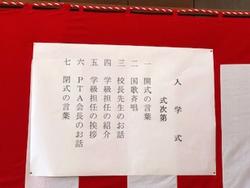 入学式
式次第
一 開式の言葉
二 国歌斉唱
三 校長先生のお話
四 学級担任の紹介
五 学級担任の挨拶
六 PTA会長のお話
七 閉式の言葉